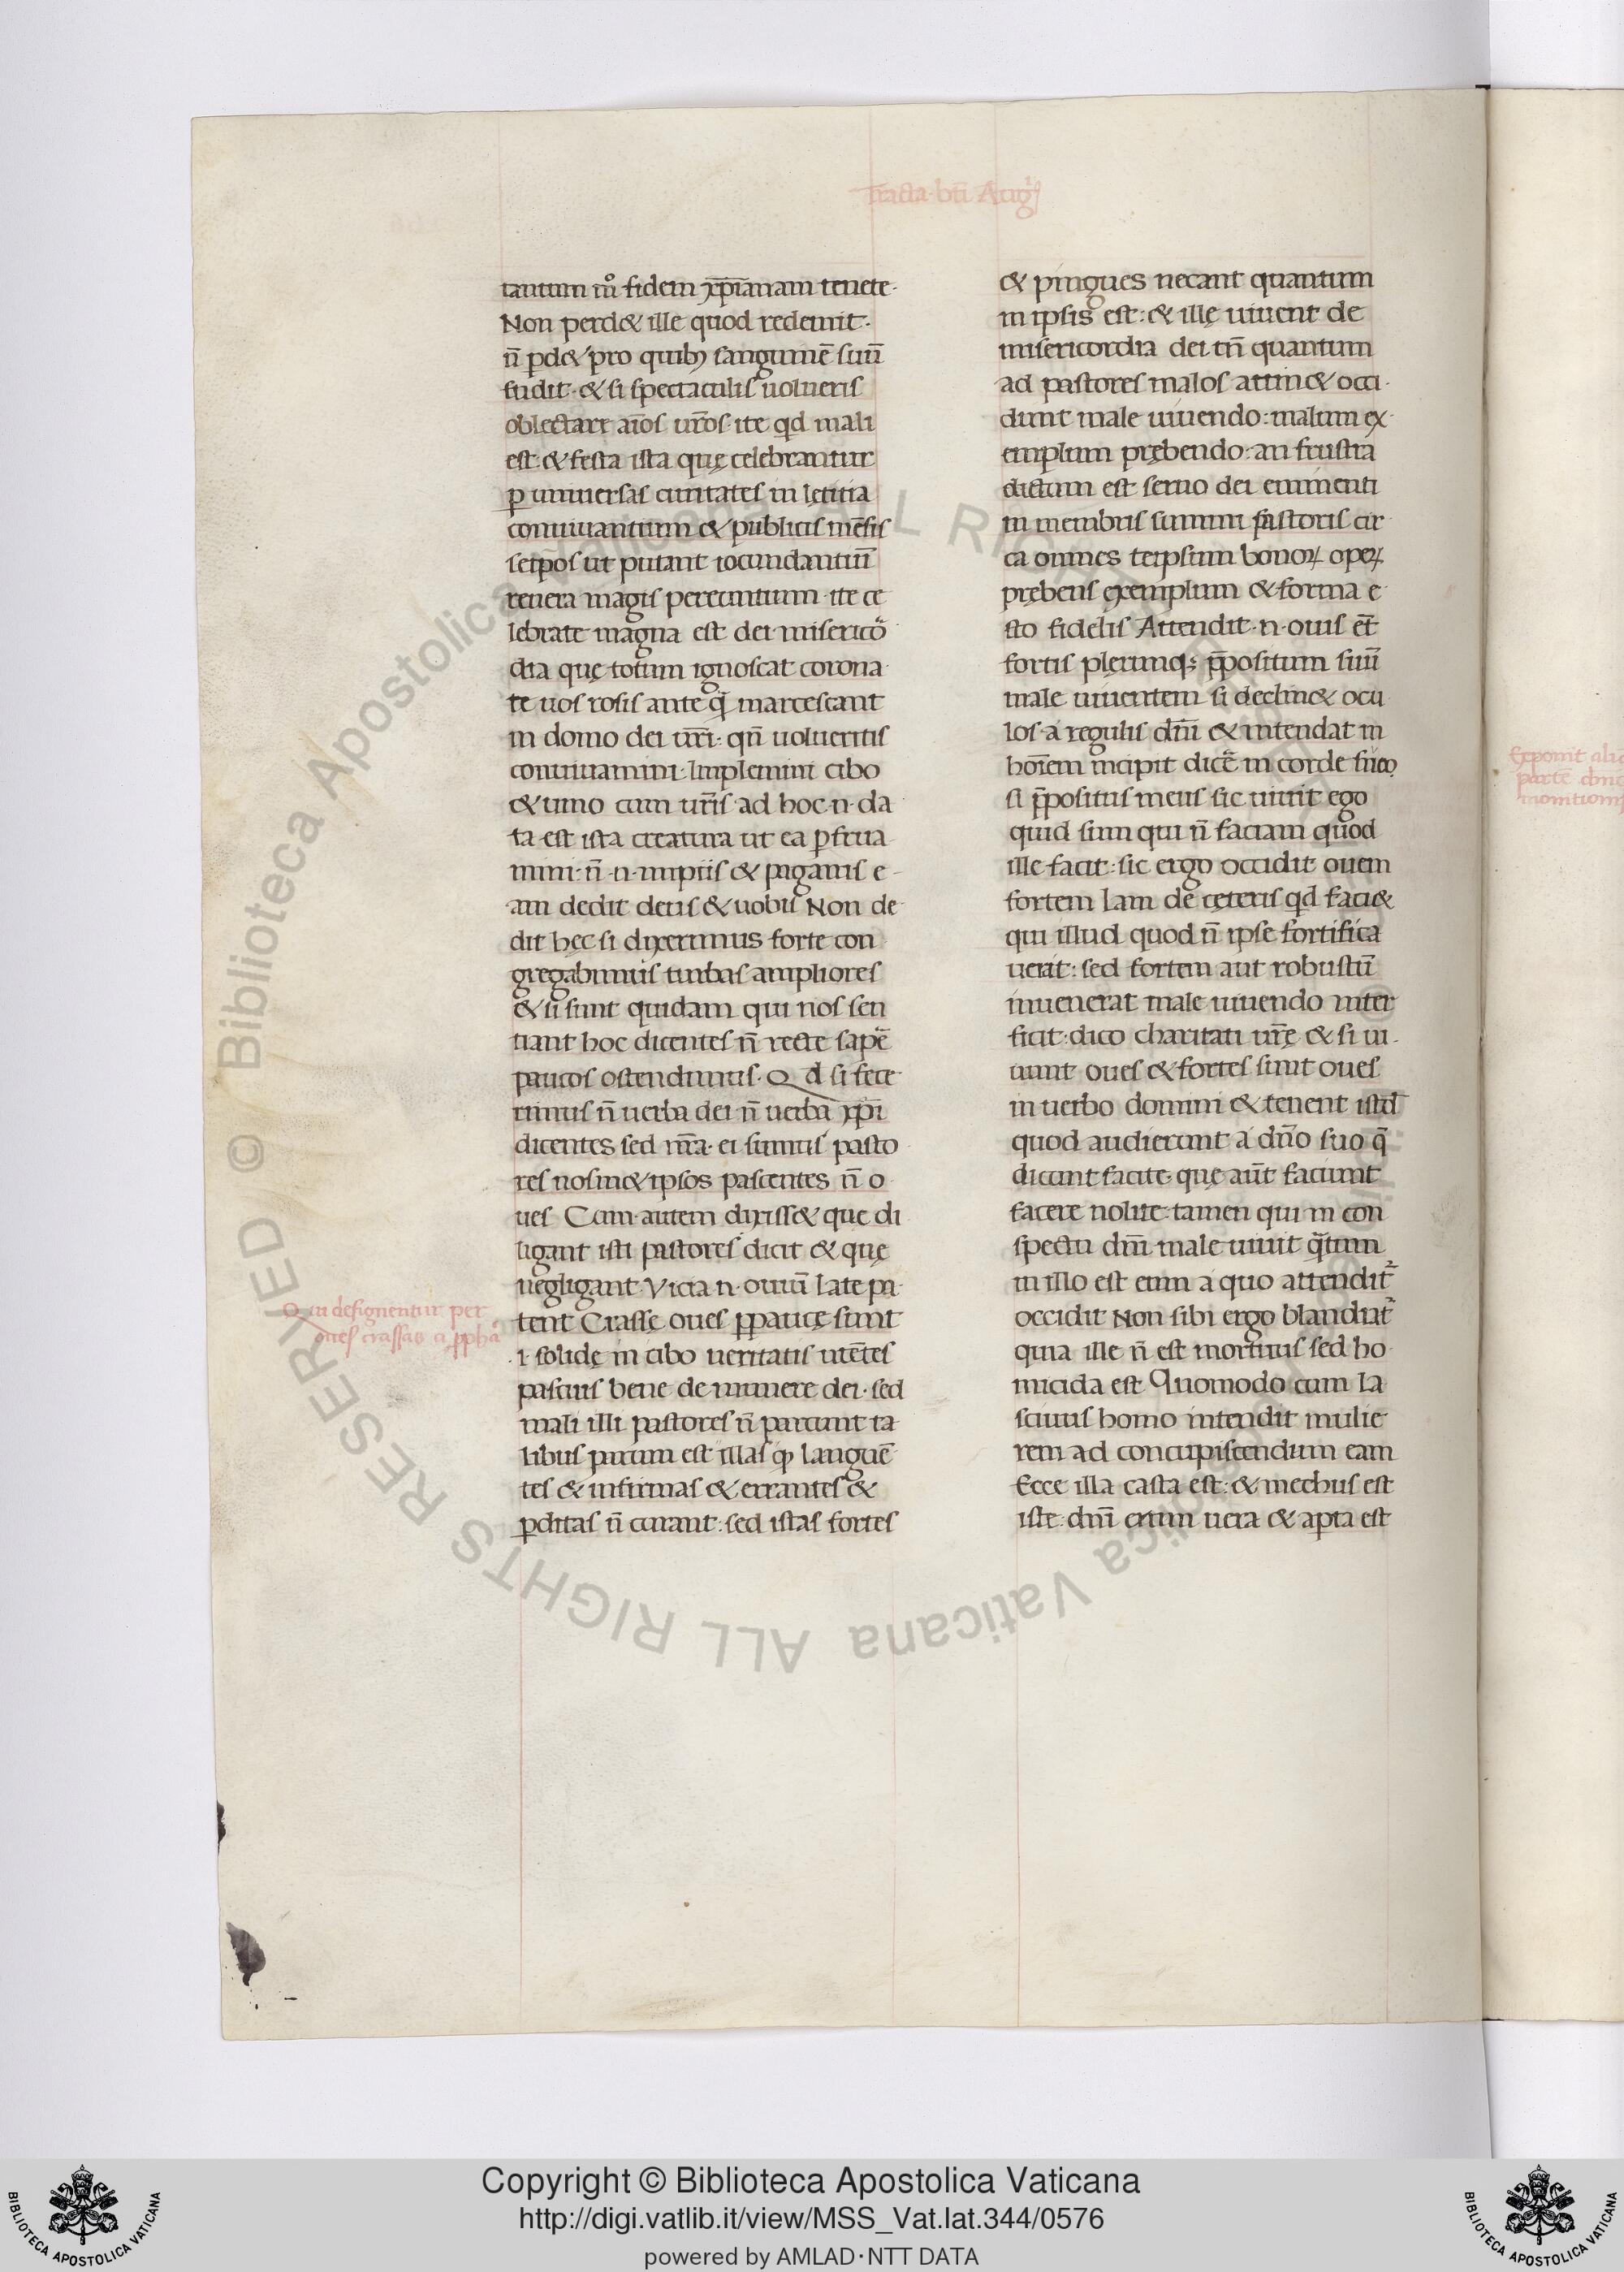 Tracta. bti Augꝰ
tantum mͦ fidem xp̅ianam tenete.
Non perd& ille quod redemit.
n̅ ꝑd& pro quibꝫ sanguine̅ suu̅
fudit. & si spectaculis uolueris
oblectare ai̅os ur̅os. ite qd mali
est: & festa ista quę celebrantur
ꝑ uniuersas ciuitates in lętitia
conuiuantium & publicis me̅sis
seipos ut putant iocundantiu̅
reuera magis pereuntium. ite ce
lebrate magna est dei misericor
dia quę totum ignoscat corona
te uos rosis ante q̅ marcescant
in domo dei ur̅i. qn̅ uolueritis
conuiuamini. Implemini cibo
& uino cum ur̅is. ad hoc .n. da
ta est ista creatura ut ea ꝑfrua
mini. n̅ .n. impiis & paganis e
am dedit deus & uobis Non de
dit hęc si dixerimus forte con
gregabimus turbas ampliores
& si sunt quidam qui nos sen
tiant hoc dicentes n̅ recte sape̅
paucos ostendimus. Qd si fece
rimus n̅ uerba dei n̅ uerba xp̅i
dicentes sed nr̅a. ei sumus pasto
res nosm&ipsos pascentes n̅ o
ues Cum autem dixiss& quę di
ligant isti pastores dicit & quę
negligant. Vicia .n. ouiu̅ late pa
tent Crassę oues ꝑpaucę sunt
.i. solidę in cibo ueritatis ute̅tes
pascuis bene de munere dei. sed
mali illi pastores n̅ parcunt ta
libus parum est illas ꝙ langue̅
tes & infirmas & errantes &
ꝑditas n̅ curant: sed istas fortes
Qui designentur per
oues crassas a ꝓph̅a
& pingues necant quantum
in ipsis est: & illę uiuent de
misericordia dei tn̅ quantum
ad pastores malos attin& occi
dunt male uiuendo: malum ex
emplum prębendo: an frustra
dictum est seruo dei eminenti
in membris summi pastoris cir
ca omnes teipsum bonoꝝ opeꝝ
prębens exemplum & forma e
sto fidelis Attendit .n. ouis et̅
fortis plerunqꝫ p̅positum suu̅
male uiuentem si declin& ocu
los a regulis dn̅i & intendat in
ho̅iem incipit dice̅ in corde suo
si p̅positus meus sic uiuit ego
quid sum qui n̅ faciam quod
ille facit: sic ergo occidit ouem
fortem Iam de cęteris qd faci&
qui illud quod n̅ ipse fortifica
uerat: sed fortem aut robustu̅
inuenerat male uiuendo inter
ficit: dico charitati ur̅ę & si ui
uunt oues & fortes sunt oues
in uerbo domini & tenent istd̅
quod audierunt a dn̅o suo q̅
dicunt facite. quę aut̅ faciunt
facere nolite. tamen qui in con
spectu dn̅i male uiuit q̅tum
in illo est eum a quo attendit᷑
occidit Non sibi ergo blandiat᷑
quia ille n̅ est mortuus sed ho
micida est Quomodo cum la
sciuus homo intendit mulie
rem ad concupiscendum eam
Ecce illa casta est: & mechus est
iste: dn̅i enim uera & apta est
Exponit alia
parte̅ dni
monitionis
Copyright © Biblioteca Apostolica Vaticana
http://digi.vatlib.it/view/MSS_Vat.lat.344/0576
powered by AMLAD·NTT DATA
BIBLIOTECA APOSTOLICA VATICANA
BIBLIOTECA APOSTOLICA VATICANA
© Biblioteca Apostolica Vaticana ALL RIGHTS RESERVED